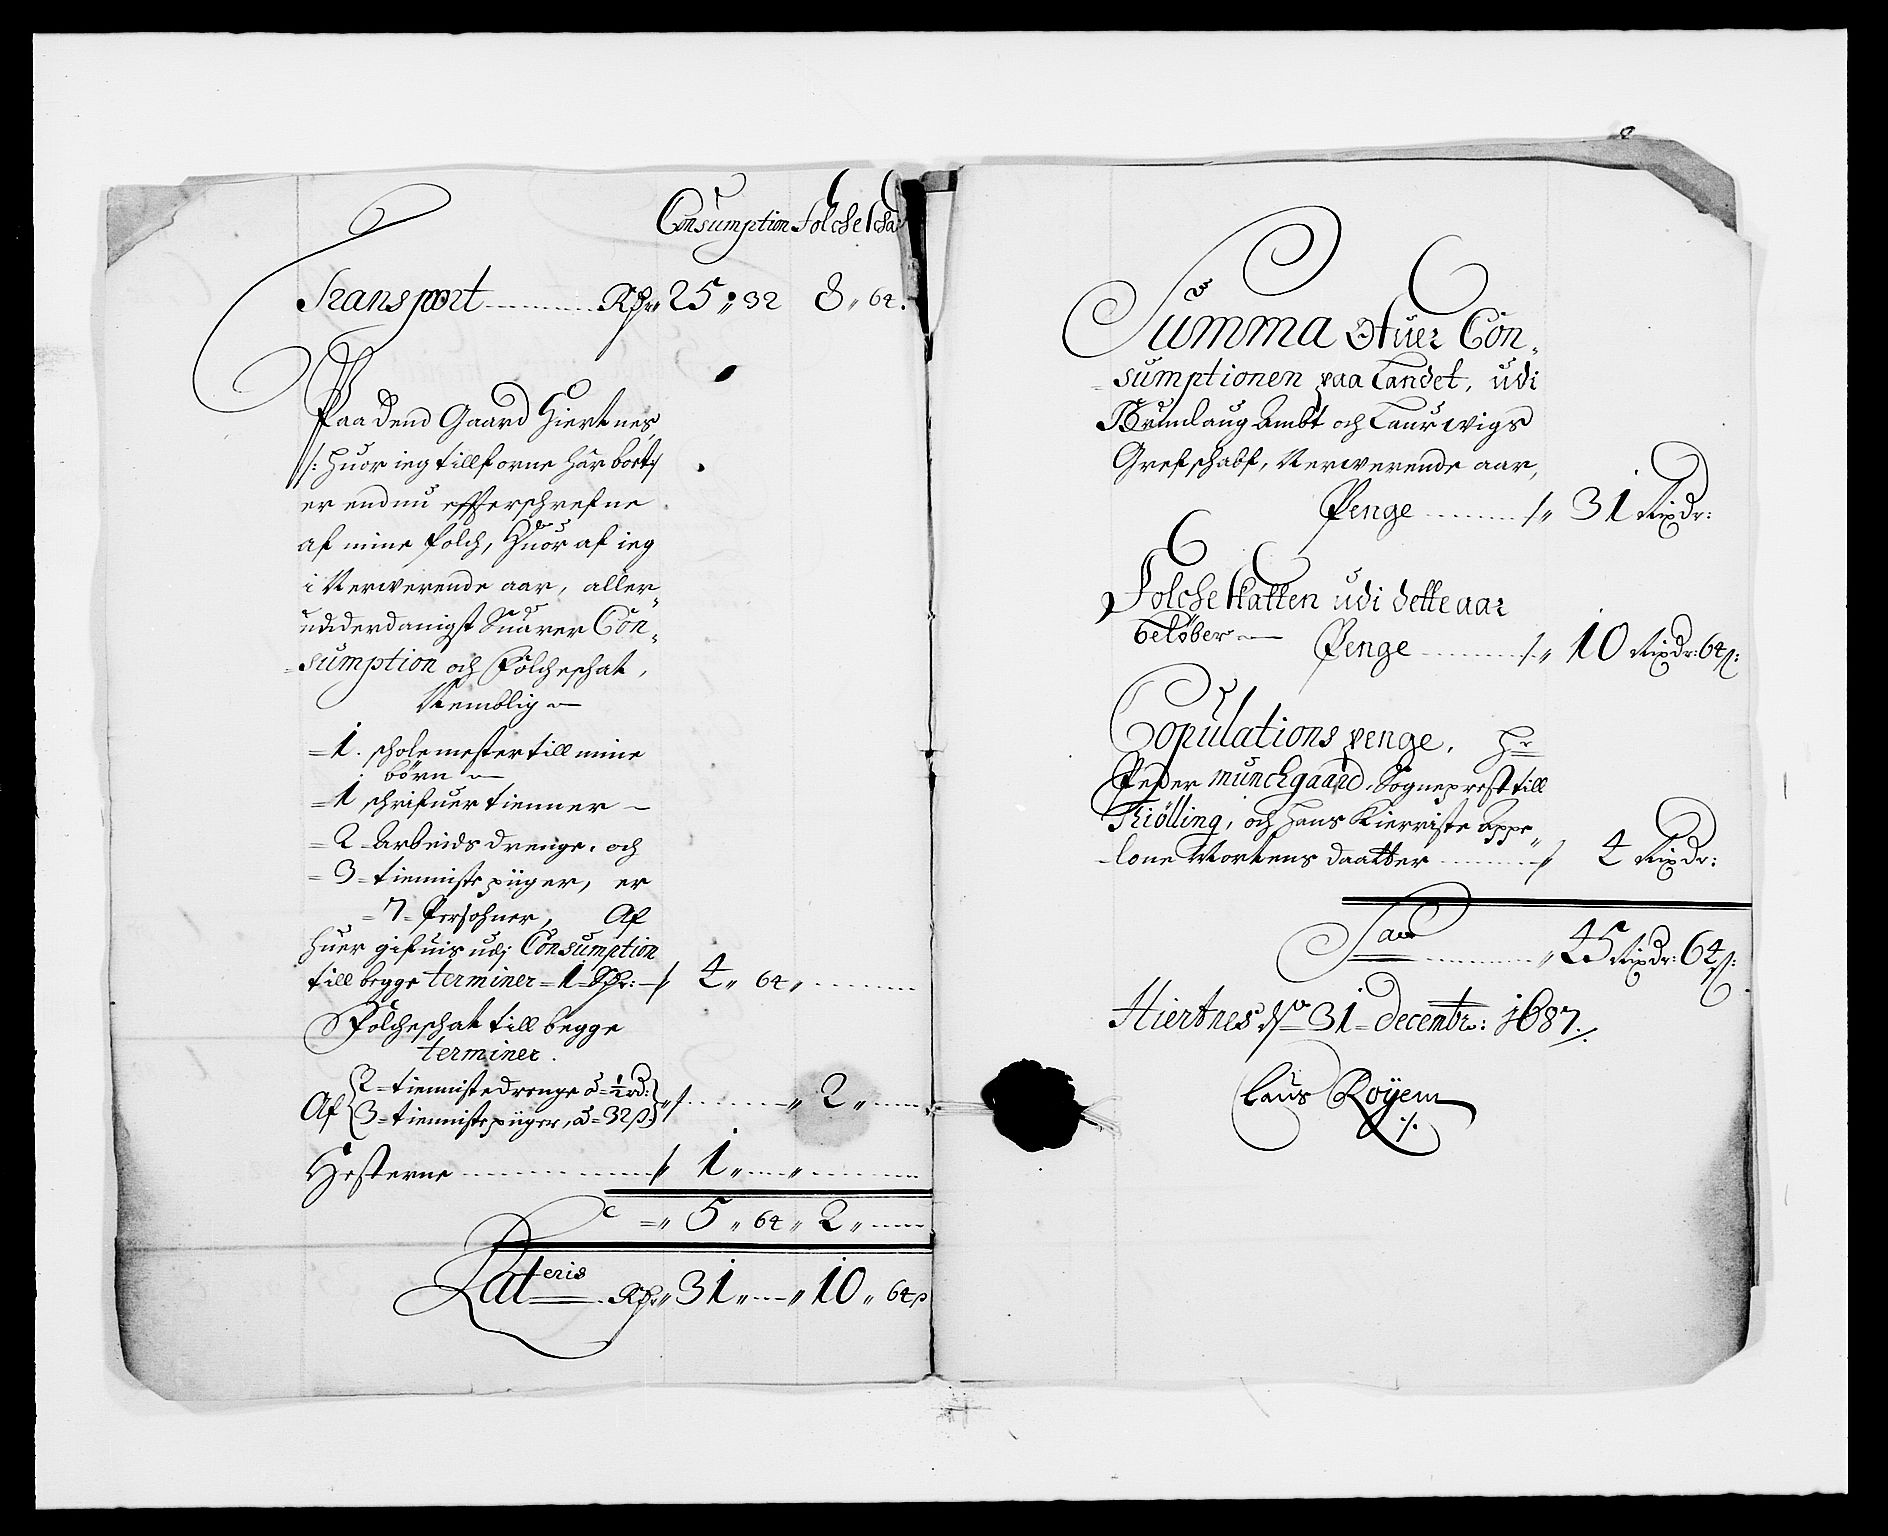 Consumption Folcheschat
Transport Rdr 25 " 32 8 " 64.
Paa dend Gaard Hiertnes
/: huor ieg tillforne har boet :/
er endnu effterschrefne
af mine folch, huor af ieg
i Nerwerende aar, aller-
udderdanigst Suarer Con-
sumption och Folcheschat,
Nemblig
1. scholemester till mine
børn
1 schrifuer tienner
2 Arbeids drenge. och
3 tienniste piiger, er
7 Persohner, Af
huer gifuis udj Consumption
till begge terminer 1 " 4 " 64 "
Folcheschat till begge
terminer.
Af 2 tienniste drenge à 1/2 rd:
3 tienniste piiger, à 32 ß " 2 "
Hesterne 1 "
5 " 64 " 2 "
Lateris Rdr 31 " 10 " 64 ß
Summa Ofuer Con-
sumptionen paa Landet, udi
Brunlaug Ambt och Laurwigs
Grefschabf, Nerwerende aar,
Penge 31 Rixdr:
Folcheskatten udi dette aar
beløber Penge 10 Rixdr: 64 ß:
Copulations penge. Hr
Peder Munchgaard, Sogneprest till
Tiølling, och Hans Kierriste Appe-
lone Mortens daatter 4 Rixdr:
Sa 45 Rixdr: 64 ß:
Hiertnes dn 31 decembr: 1687
Claus Røyem